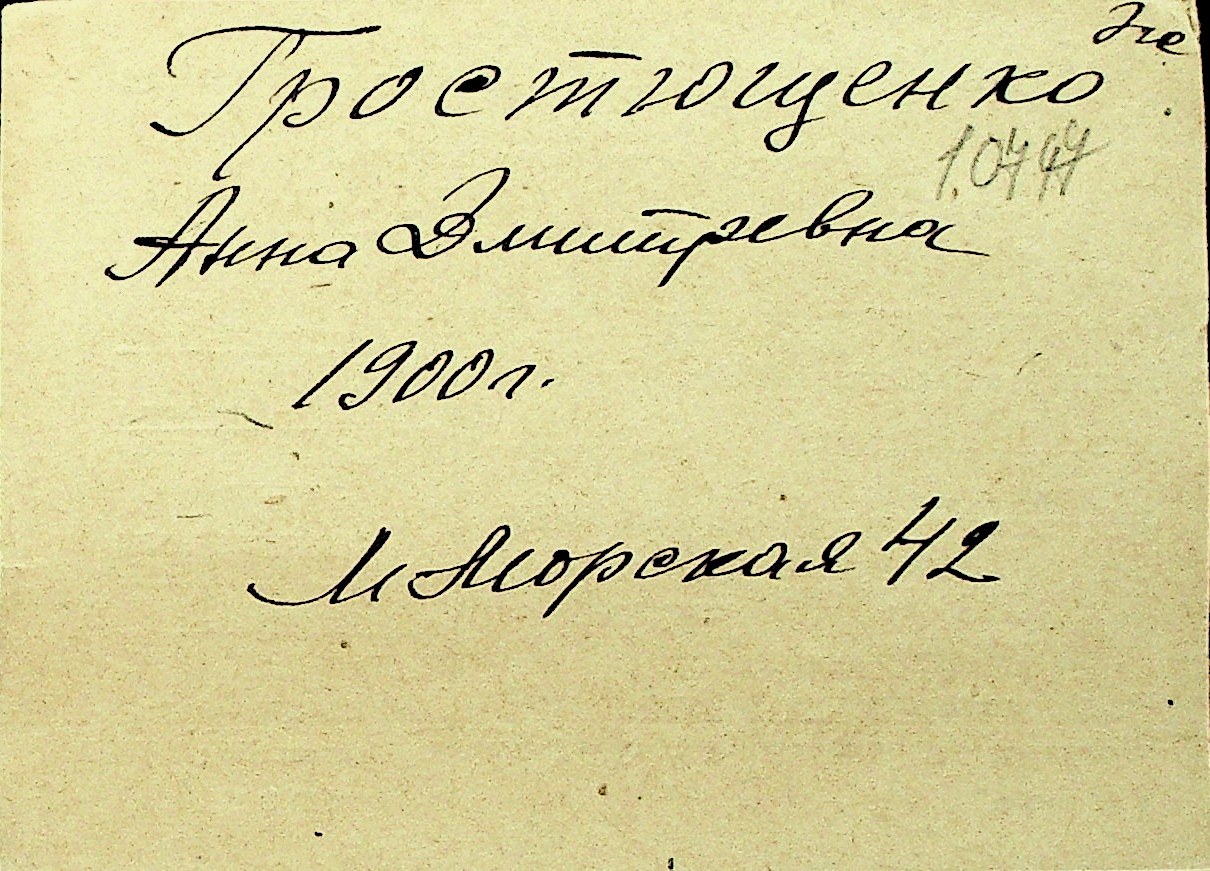 Гростющенко
10747
Анна Дмитревна
1900г.
М Морская 42